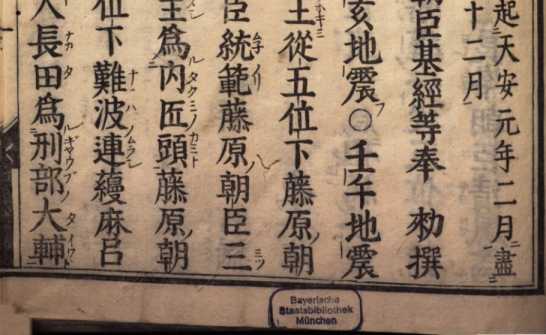 起天安元年二月盡
十二月
朝臣基經等奉 勅撰
亥地震○壬午地震
王從五位下藤原朝
臣統範藤原朝臣三
主爲内匠頭藤原朝
位下難波連蘰麻呂
人長田爲刑部大輔
Bayerische
Staatsbibliothek
München